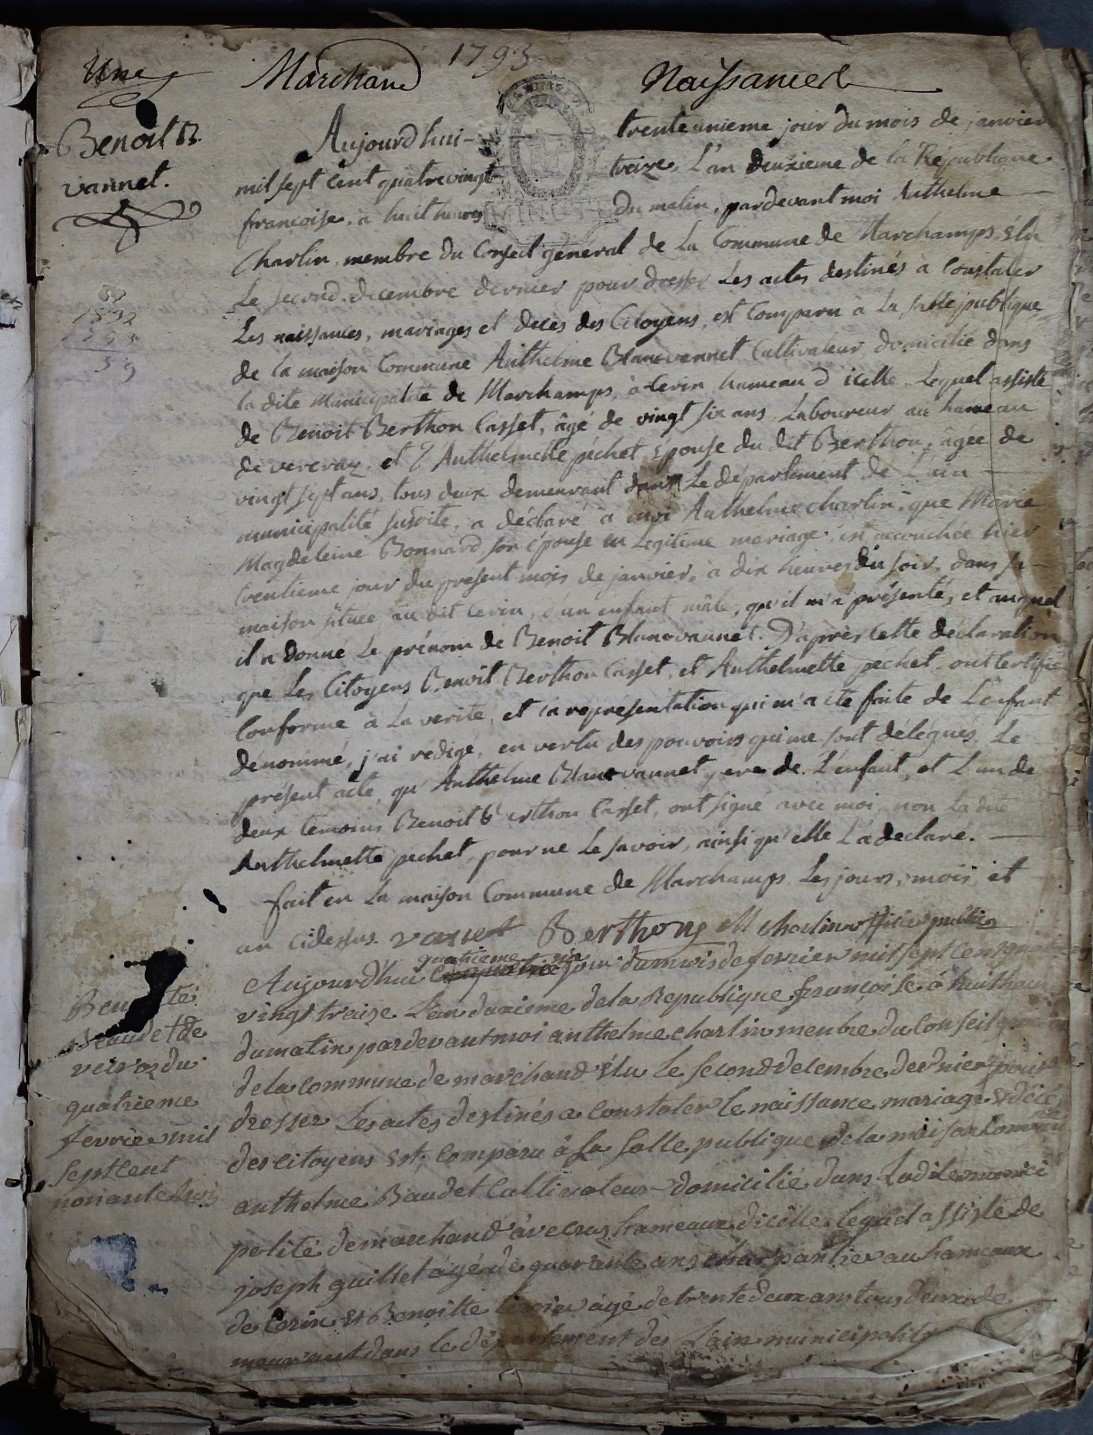 1793
Une Marchand Naissances
Benoit B.
vannet.
Aujourd'hui trente unieme jour du mois de janvier
mil sept cent quatre vingt treize, L'an deuxieme de la République
françoise, à huit heures du matin, pardevant moi Anthelme
Charlin membre du Conseil général de La Commune de Marchamps, élu
Le second decembre dernier pour dresser Les actes destinés à Constater
Les naissances, mariages et décès des Citoyens, est Comparu à La salle publique
de la maison Commune Anthelme Blancvannet Cultivateur domicilié dans
la dite municipalité de Marchamps, à Cerin hameau d'icelle. Lequel assisté
de Benoit Berthon Casset, âgé de vingt six ans Laboureur au hameau
de vercraz, et d'Anthelmette pechet, épouse du dit Berthon, agée de
vingt sept ans, tous deux demeurant dans Le département de L'ain
municipalité susdite, a déclaré à moi Anthelme charlin, que Marie
Magdeleine Bonnard son épouse en légitime mariage, est accouchée hier
trentieme jour du present mois de janvier, à dix heures du soir, dans sa
maison située au dit Cerin, d'un enfant mâle, qu'il m'a présenté, et auquel
il a donné Le prénom de Benoit Blancvannet. D'après cette déclaration
que Les Citoyens Benoit Berthon Casset, et Anthelmette pechet, ont certifié
Conforme à La verité, et la representation qui m'a été faite de L'enfant
dénommé, j'ai redigé, en vertu des pouvoirs qui me sont délégués, Le
présent acte, qu'Anthelme Blancvannet pere de L'enfant, et L'un de
deux temoins Benoit Berthon Casset, ont signé avec moi, non La dite
Anthelmette pechet, pour ne Le savoir, ainsi qu'elle L'a declaré.
fait en La maison Commune de Marchamps, Les jours, mois, et
an cidessus. vannet Berthon Charlin officier public
quatrieme
Aujourd'hui jour du mois de fevrier mil sept cent quatre
vingt traize L'an deuxieme de la Republique françoise à huit heures
du matin pardevant moi anthelme charlin membre du Conseil
de la commune de marchand élu Le second decembre dernier pour
dresser Les actes destinés a Constater le naissance mariage et décé
des citoyens est comparu à La Salle publique de la maison Commune
anthelme Baudet Cultivateur domicilié dans Ladite munici
palité de marchand à vercraz hameaux dicelle lequel assisté de
joseph guillet âgé de quarante ans charpantier au hameaux
de Cerin et Benoitte âgé de trente deux ans tous deux de
meurant dans le département de L'ain municipalité
Benoitte
Beaudet de
vercraz du
quatrieme
fevrier mil
sept cent
nonante trois